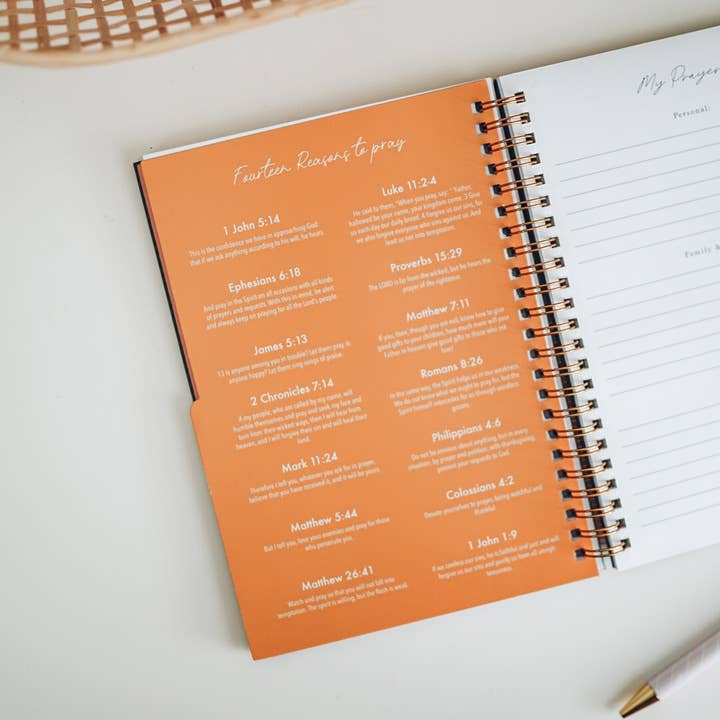 Fourteen Reasons to pray
1 John 5:14
This is the confidence we have in approaching God:
that if we ask anything according to his will, he hears.
Ephesians 6:18
And pray in the Spirit on all occasions with all kinds
of prayers and requests. With this in mind, be alert
and always keep on praying for all the Lord's people
James 5:13
13 Is anyone among you in trouble? Let them pray. Is
anyone happy? Let them sing songs of praise.
2 Chronicles 7:14
if my people, who are called by my name, will
humble themselves and pray and seek my face and
turn from their wicked ways, then I will hear from
heaven, and I will forgive their sin and will heal their
land.
Mark 11:24
Therefore I tell you, whatever you ask for in prayer,
believe that you have received it, and it will be yours.
Matthew 5:44
But I tell you, love your enemies and pray for those
who persecute you.
Matthew 26:41
"Watch and pray so that you will not fall into
temptation. The spirit is willing, but the flesh is weak.
Luke 11:2-4
He said to them, "When you pray, say: " 'Father,
hallowed be your name, your kingdom come. 3 Give
us each day our daily bread. 4 Forgive us our sins, for
we also forgive everyone who sins against us. And
lead us not into temptation.
Proverbs 15:29
The LORD is far from the wicked, but he hears the
prayer of the righteous.
Matthew 7:11
If you, then, though you are evil, know how to give
good gifts to your children, how much more will your
Father in heaven give good gifts to those who ask
him!
Romans 8:26
In the same way, the Spirit helps us in our weakness.
We do not know what we ought to pray for, but the
Spirit himself intercedes for us through wordless
groans.
Philippians 4:6
Do not be anxious about anything, but in every
situation, by prayer and petition, with thanksgiving,
present your requests to God.
Colossians 4:2
Devote yourselves to prayer, being watchful and
thankful.
1 John 1:9
If we confess our sins, he is faithful and just and will
forgive us our sins and purify us from all unrigh
teousness.
My Prayer
Personal:
Family &